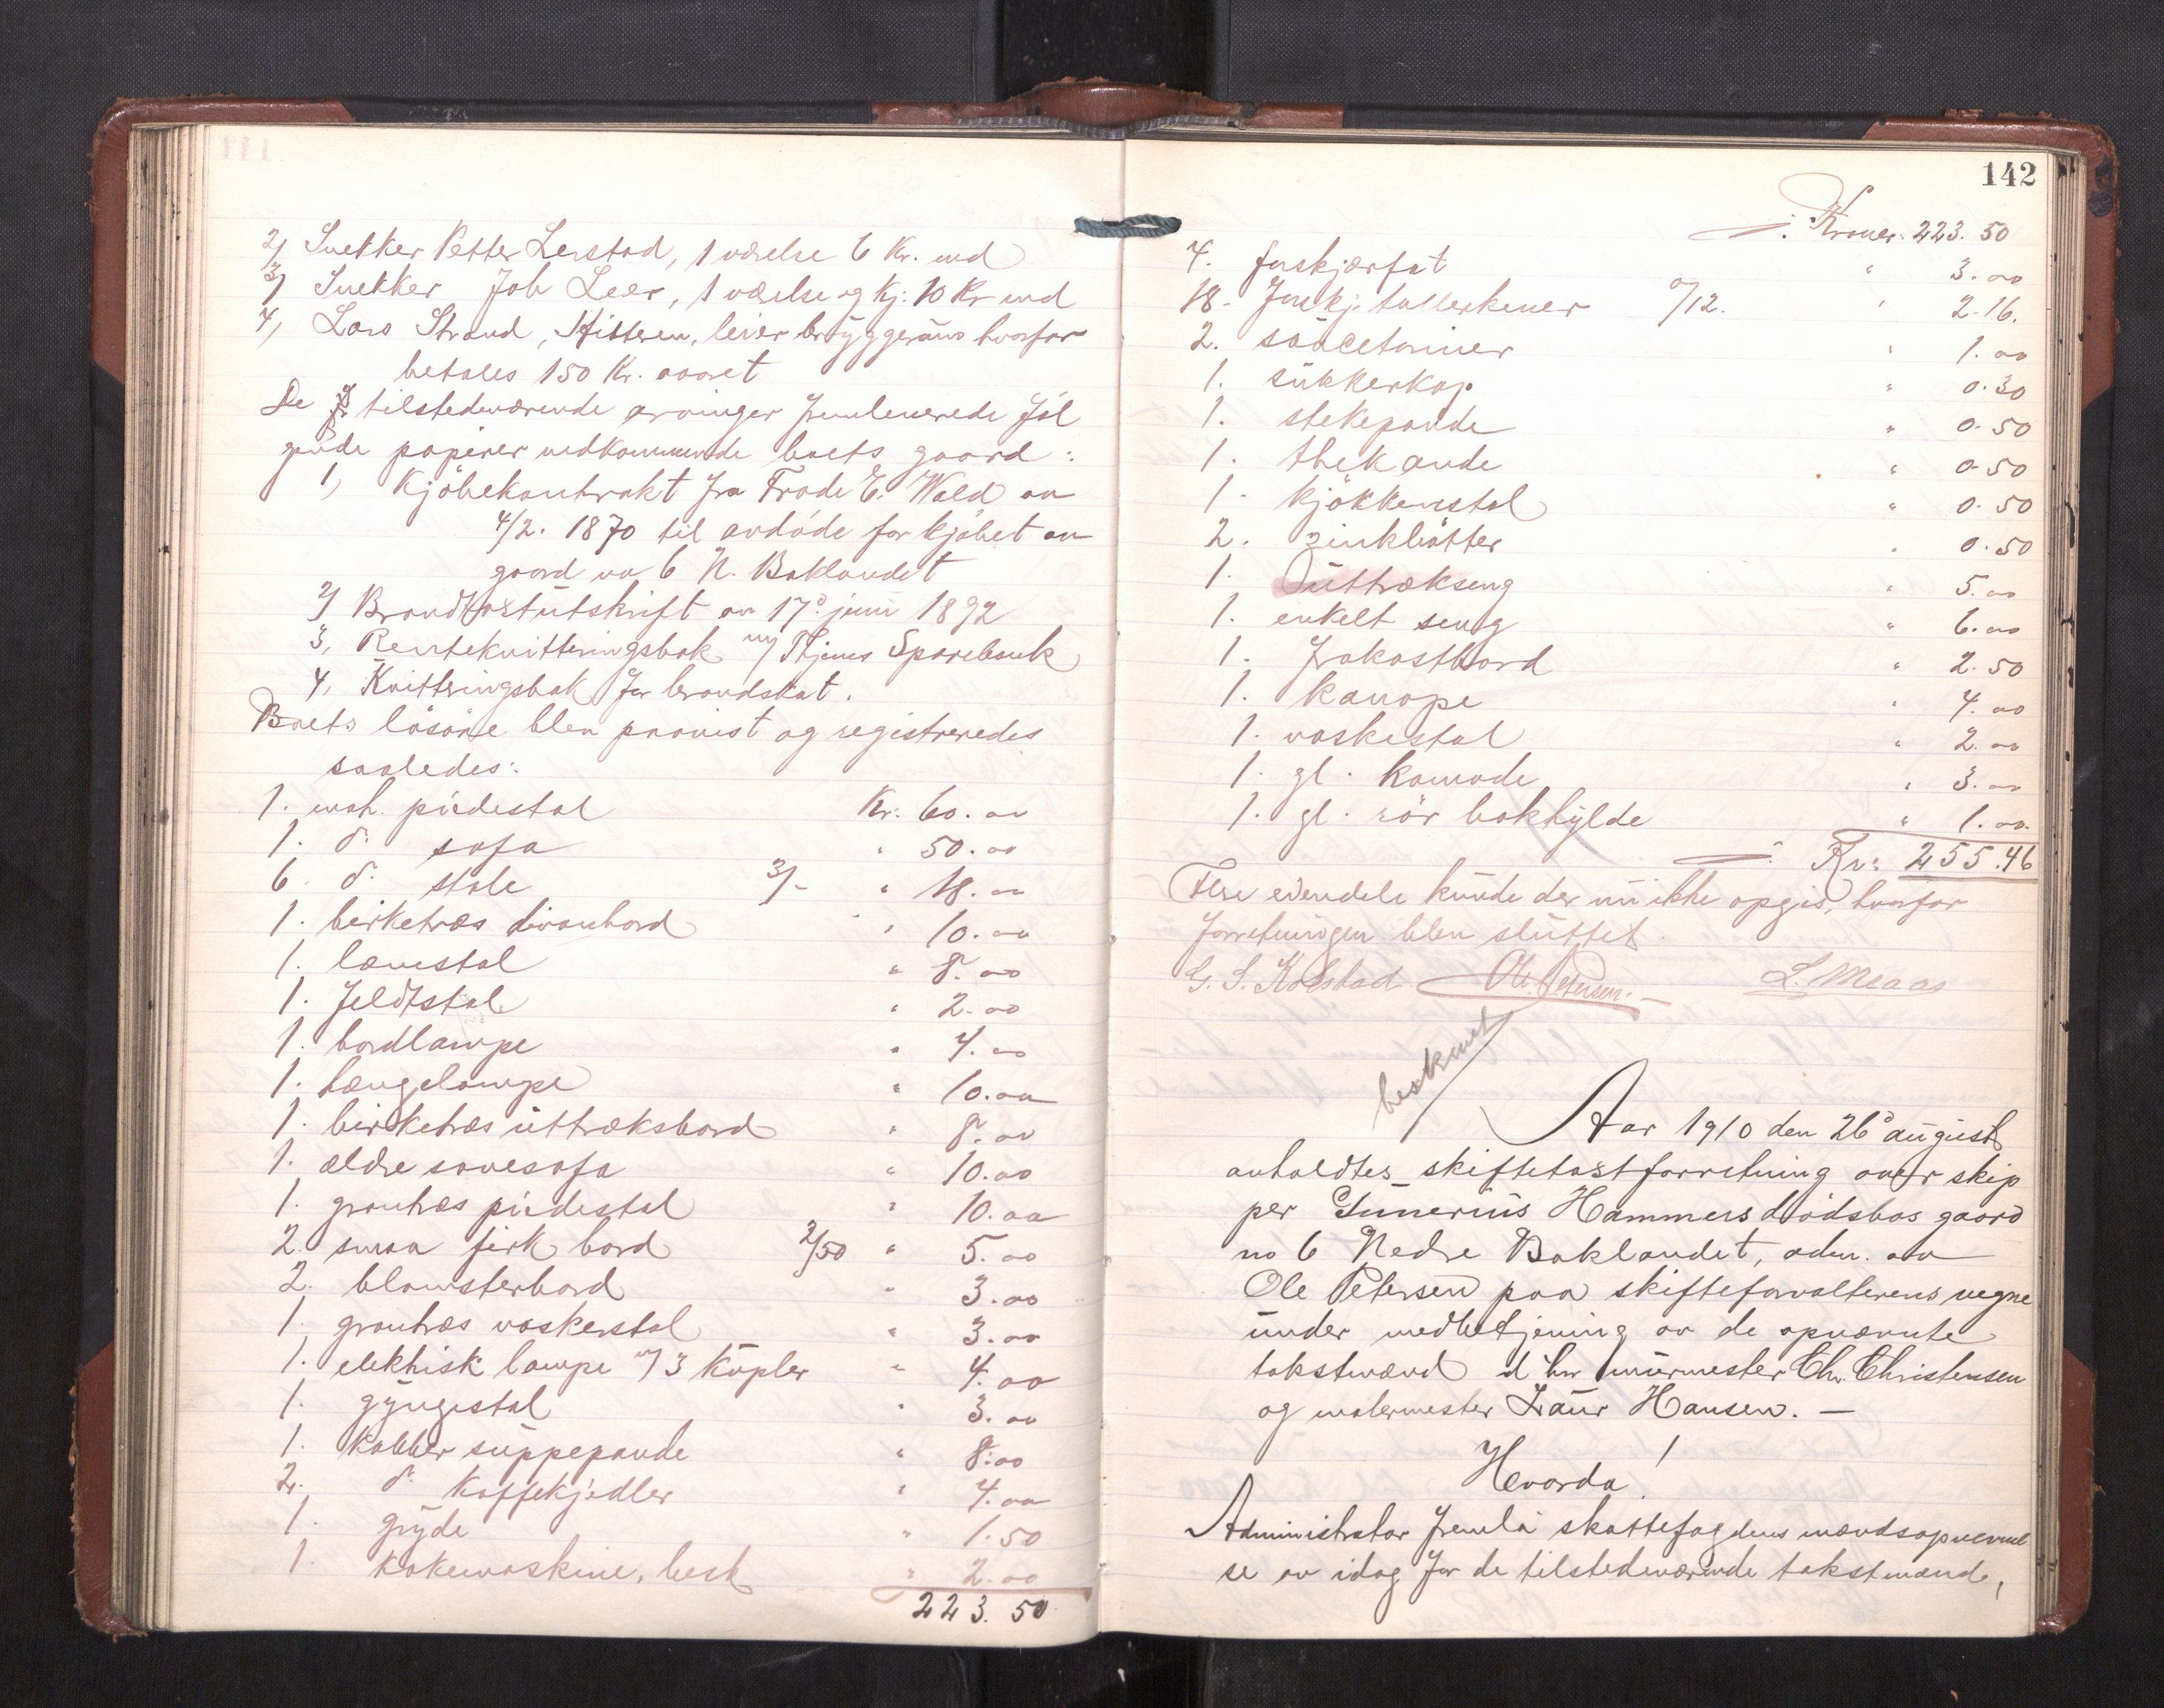 2) Snekker Petter Lerstad, 1 værelse 6 Kr. md
3) Snekker Joh Leer, 1 værelse og kj: 10 Kr md
4, Lars Strand, Hitteren, leier bryggerüm hvorfor
betales 150 Kr. aaret
De tilstedeværende arvinger fremleverede föl
gende papirer vedkommende boets gaard:
1, Kjöbekontrakt fra Frode E. Wald av
4/2. 1870 til avdöde for kjöbet av
gaard no 6 N. Baklandet
2) Brandtakstutskrift av 17de juni 1892
3, Rentekvitteringsbok m/ Thjems Sparebank
4, Kvitteringsbok for brandskat.
Boets lösöre blev paavist og registreredes
saaledes:
1. mah. piedestal Kr: 60.00
1. do sofa " 50.00
6. do stole 3/- " 18.00
1. birketræs divanbord " 10.00
1. lænestol " 8.00
1. feldtstol " 2.00
1. bordlampe " 4.00
1. hængelampe " 10.00
1. birketræs üttræksbord " 8.00
1. ældre sovesofa " 10.00
1. grantræs piedestal " 10.00
2. smaa firk bord 2/50 " 5.00
2. blomsterbord " 3.00
1. grantræs vaskerstol " 3.00
1. elektrisk lampe m/ 3 küpler " 4.00
1. gyngestol " 3.00
1. kobber süppepande " 8.00
2. do kaffekjedler " 4.00
1. gryde " 1.50
1. kokemaskine, besk " 2.00
223.50
142
Kroner 223.50
4. fuskjærfat " 3.00
18. fuskj. tallerkener 0/12. " 2.16.
2. saücetoriner " 1.00
1. sükkerkop " 0.30
1. stekepande " 0.50
1. thekande " 0.50
1. kjökkenstol " 0.50
2. zinkbötter " 0.50
1. üttrækseng " 5.00
1. enkelt seng " 6.00
1. frokostbord " 2.50
1. kanape " 4.00
1. vaskestol " 2.00
1. gl. komode " 3.00
1. gl. rör bokhylde " 1.00.
Kr: 255.46
Flere eiendele künde der nü ikke opgis, hvorfor
forretningen blev slüttet.
G. S. Kolstad Ole Petersen. L. Meaas
beskrevet
Aar 1910 den 26de aügust
avholdtes skiftetakstforretning over skip
per Hammers dödsbos gaard
no 6 Nedre Baklandet, adm. av
Ole Petersen paa skifteforvalterens vegne
ünder medbetjening av de opnævnte
takstmænd d'hrr mürmester Chr. Christensen
og malermester Laür Hansen. —
Hvorda!
Administrator fremla skattefogdens mændsopnævnel
se av idag for de tilstedeværende takstmænd,